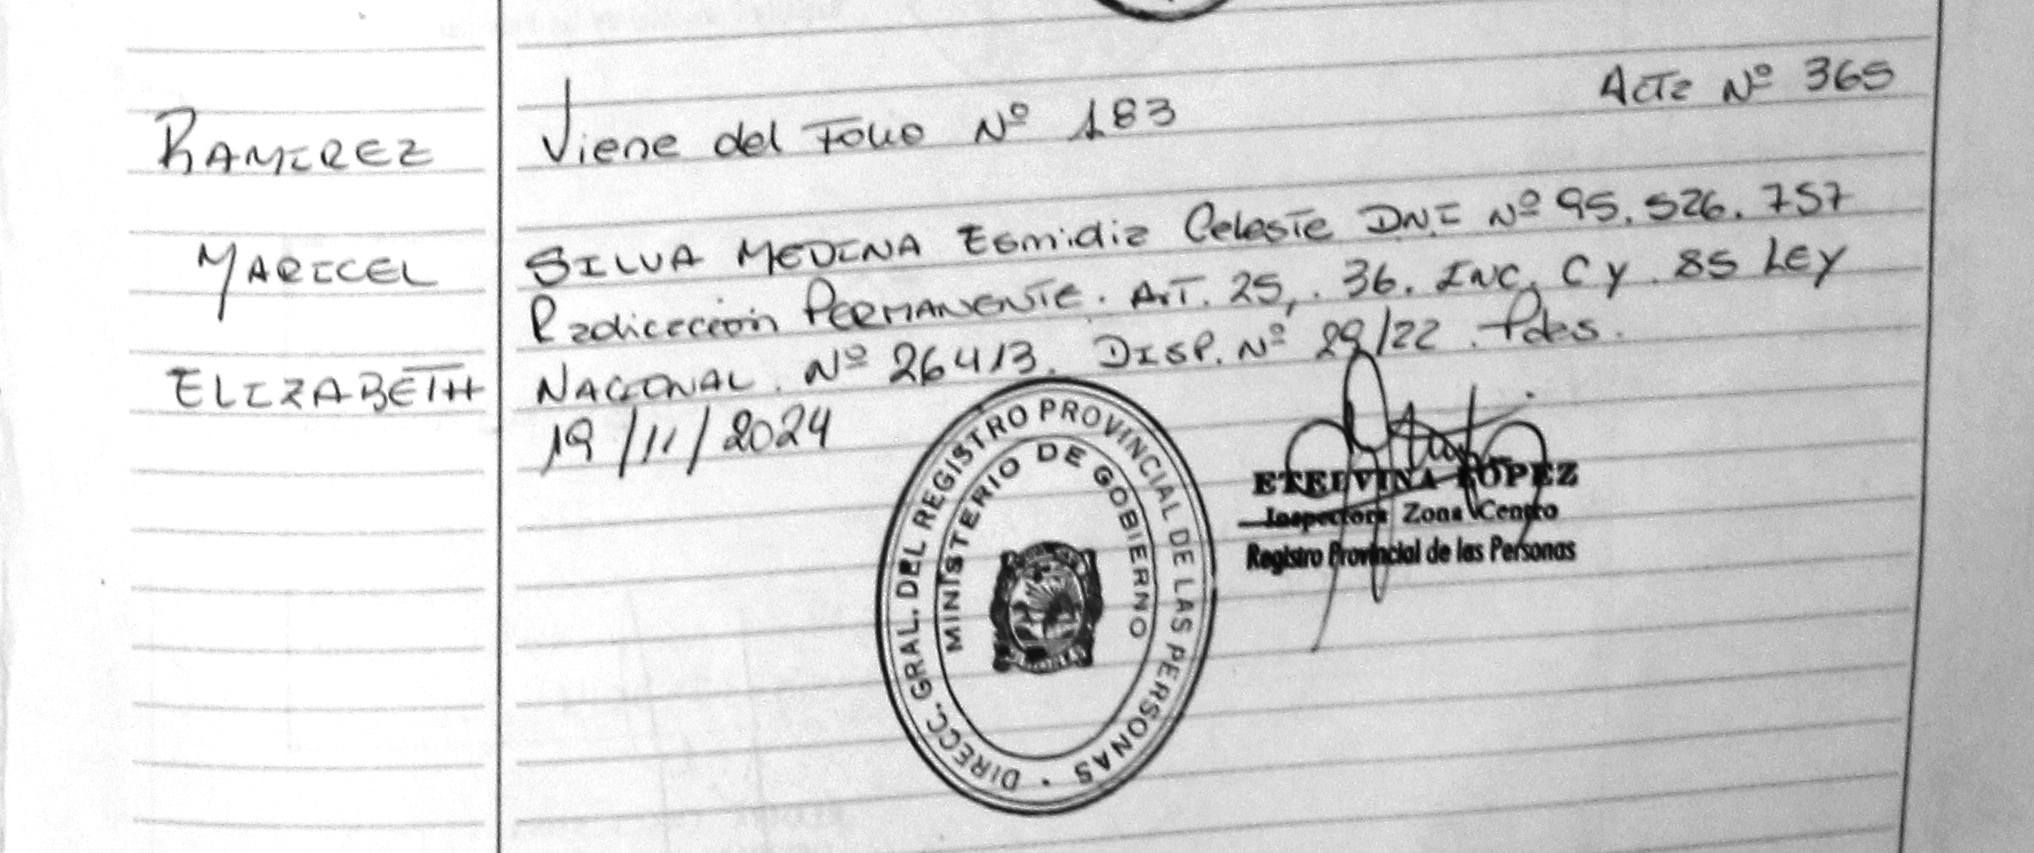 Acta Nº 365
RAMIREZ
Viene del Folio Nº 183
MARICEL
SILVA MEDINA Esmidia Celeste DNI Nº 95.526.757
Radicación PERMANENTE. ArT. 25,. 36. INC. C y 85 LEY
ELIZABETH
NACIONAL. Nº 26413. DISP. Nº 29/22. Pdas.
19/11/2024
DIRECC. GRAL. DEL REGISTRO PROVINCIAL DE LAS PERSONAS
MINISTERIO DE GOBIERNO
ETELVINA LOPEZ
Inspectora Zona Centro
Registro Provincial de las Personas